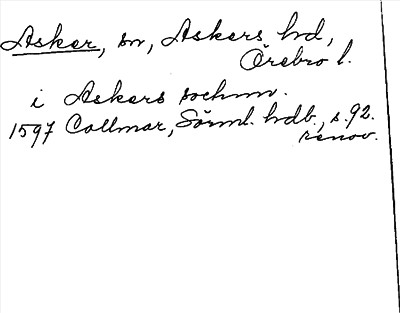 Asker, sn, Askers hd,
Örebro l.
i Askers sochnn.
1597 Collmar, Sörml. hdb., s. 92.
renov.